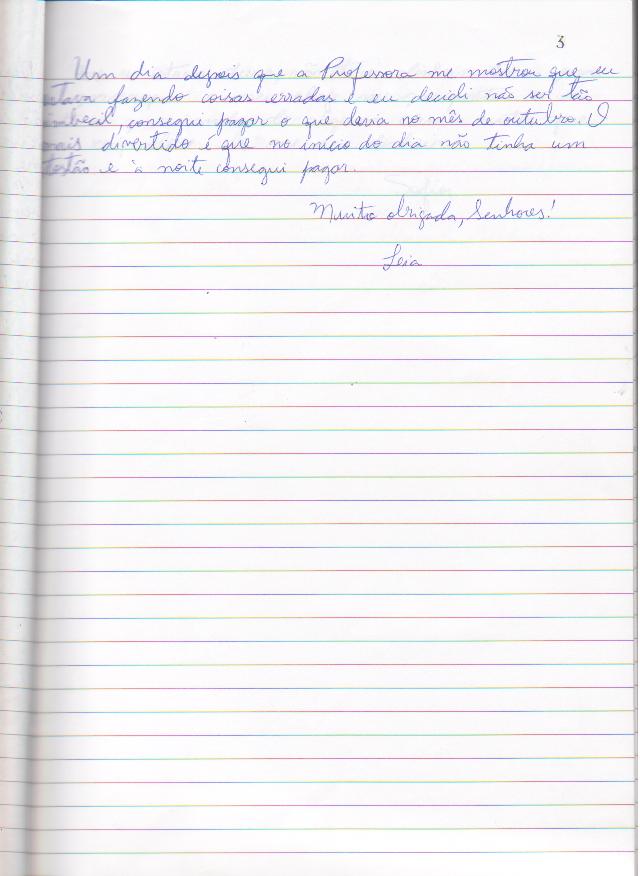 3
Um dia depois que a Professora me mostrou que eu
estava fazendo coisas erradas e eu decidi não ser tão
imbecil, consegui pagar o que devia no mês de outubro. O
mais divertido é que no início do dia não tinha um
tostão e à noite consegui pagar.
Muito obrigada, Senhores!
Leia